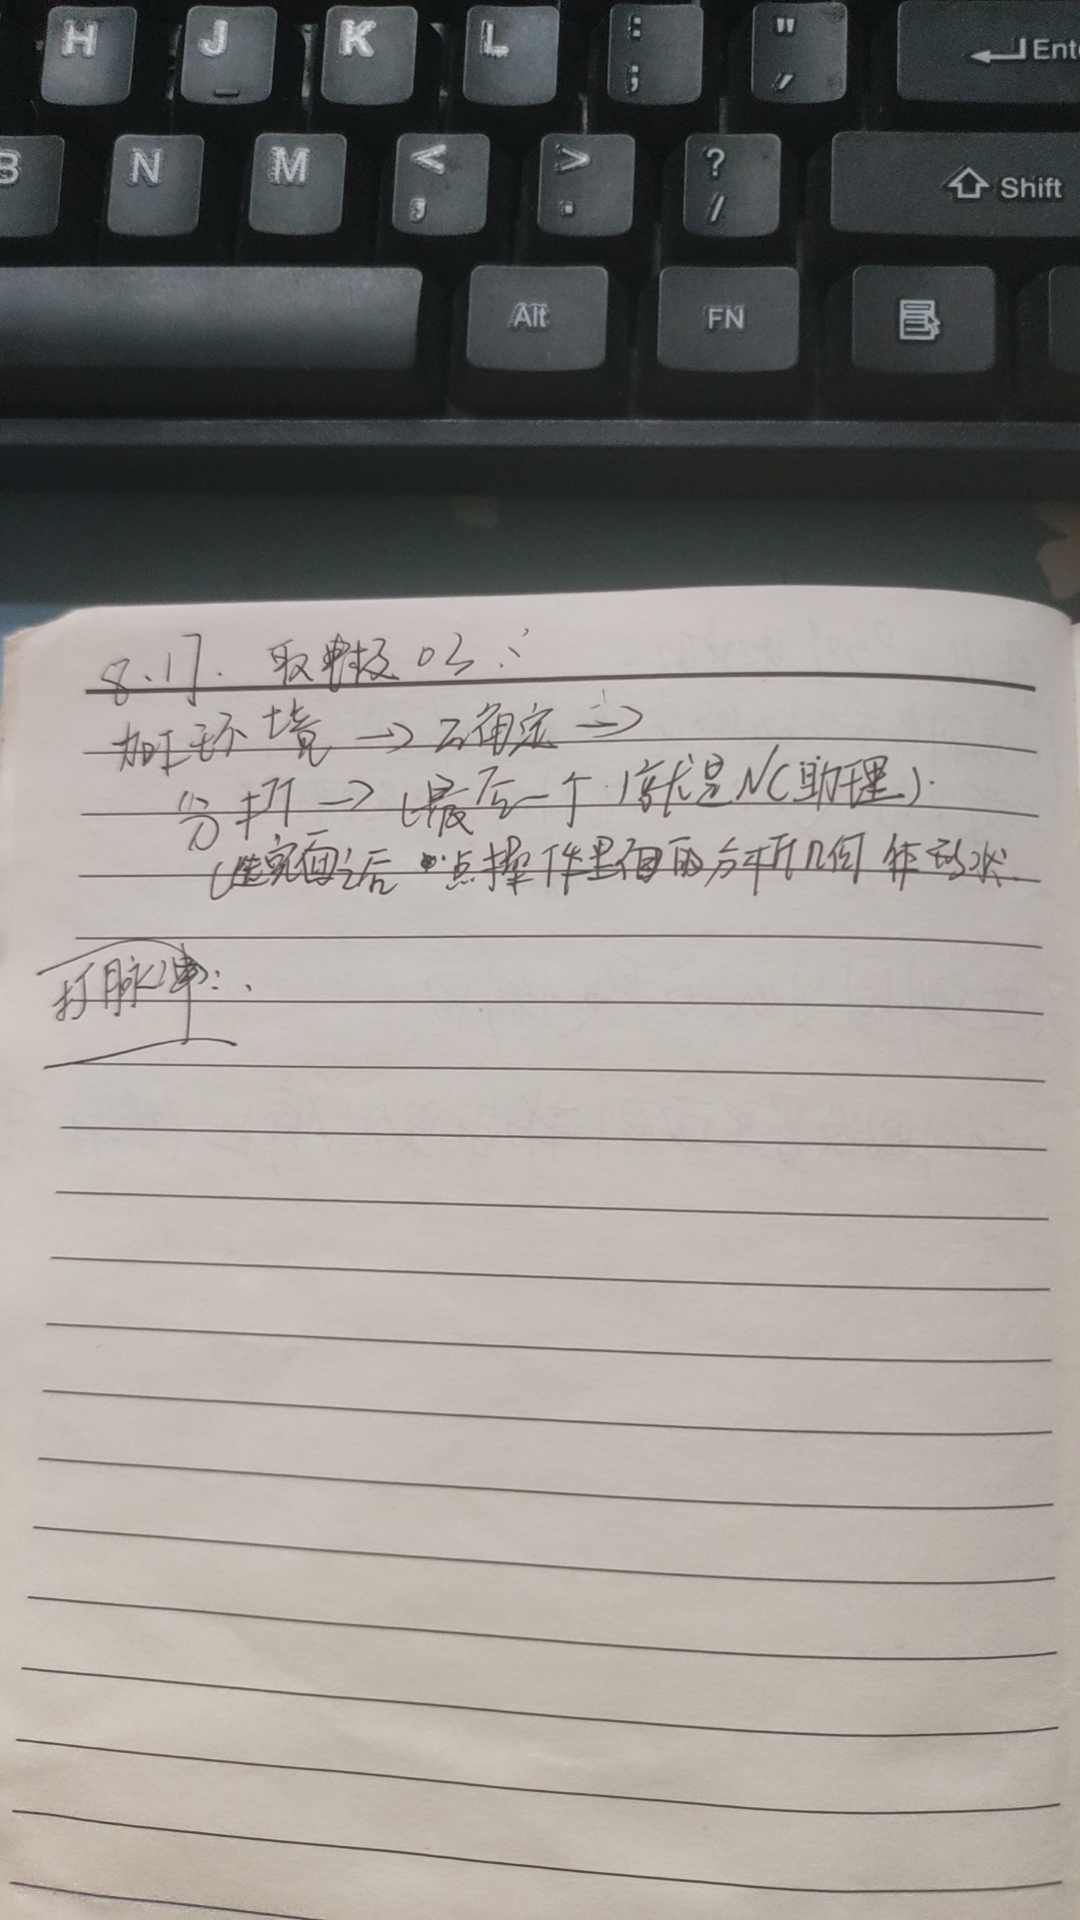 H J _ K L : ; " Ente
B N M < , > . ? / Shift
Alt FN
8.17. 取电极
加工环境 → 确定 →
分析 → (最后一个就是NC助理).
(选完面之后 点操作里面的分析几何
打脉冲: